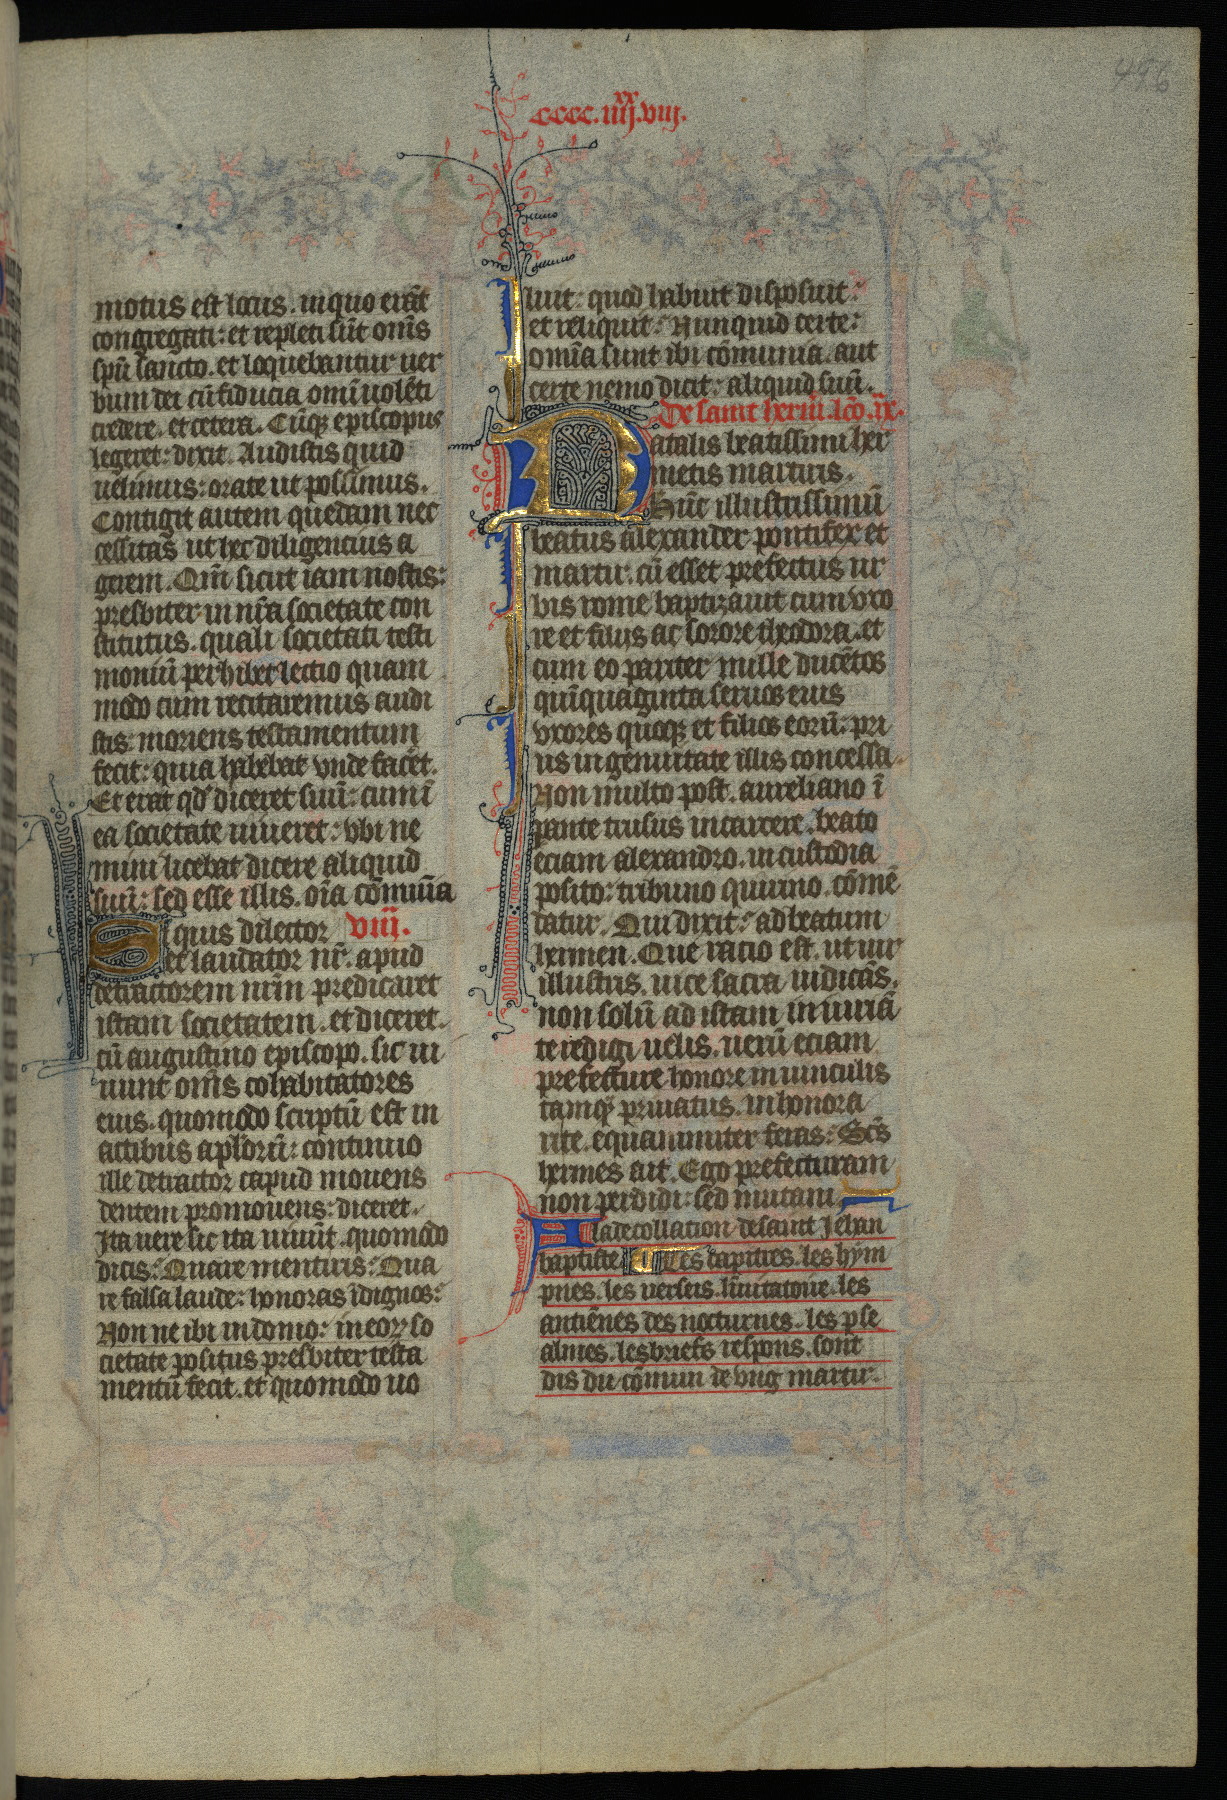 496
cccc.iiij.xx.viij.
motus est locus. in quo erãt
congregati: et repleti sũt om̃s
spũ sancto. et loquebantur uer
bum dei cũ fiducia omĩ uolẽti
credere. et cetera. Cũq; episcopus
legeret: dixit. Audistis quid
uelimus: orate ut possimus.
Contigit autem quedam nec
cessitas ut hec diligencius a
gerem. Qm̃ sicut iam nostis:
presbiter in nr̃a societate con
stitutus. quali societati testi
moniũ perhibet lectio quam
modo cum recitaremus audi
stis: moriens testamentum
fecit: quia habebat vnde facẽt.
Et erat qd̃ diceret suũ: cum ĩ
ea societate uiueret: vbi ne
mini licebat dicere aliquid
suũ: sed esse illis. oĩa cõmunia
Si quis dilector viij.
et laudator nr̃. apud
detractorem nr̃m predicaret
istam societatem. et diceret.
cũ augustino episcopo. sic ui
uunt om̃s cohabitatores
eius. quomodo scriptũ est in
actibus aplorũ: continuo
ille detractor capud mouens
dentem promouens: diceret.
Ita uere sic ita uiuũt. quomodo
dicis: Quare mentiris: Qua
re falsa laude: honoras ĩdignos:
Non ne ibi in domo: in eorꝝ so
cietate positus presbiter testa
mentũ fecit. et quomodo uo
luit: quod habuit disposuit:
et reliquit: Nunquid certe:
omĩa sunt ibi cõmunia. aut
certe nemo dicit: aliquid suũ.
De saint hermẽ. lcõ. ix.
Natalis beatissimi her
metis martiris.
Hũc illustrissimũ
beatus alexander pontifex et
martir. cũ esset prefectus ur
bis rome baptizauit cum vxo
re et filijs ac sorore theodora. et
cum eo pariter mille ducẽtos
quĩquaginta seruos eius
vxores quoq; et filios eorũ: pri
us ingenuitate illis concessa.
Non multo post. aureliano ĩ
pante trusus in carcere. beato
eciam alexandro. in custodia
posito: tribuno quirino. cõmẽ
datur. Qui dixit: ad beatum
hermen. Que racio est. ut uir
illustris. uice sacra iudicãs.
non solũ ad istam iniuriã
te redigi uelis. uerũ eciam
prefecture honorem uinculis
tamq̃ priuatus. in honora
rite. equanimiter feras: Scs̃
hermes ait. Ego prefecturam
non perdidi: sed mutaui.
A la decollation de saint Jehan
baptiste. Les capitres. les hym
pnes. les verseis. linuitatoire. les
antiẽnes des nocturnes. les pse
almes. les briefs respons. sont
dis du cõmun de vng martir.